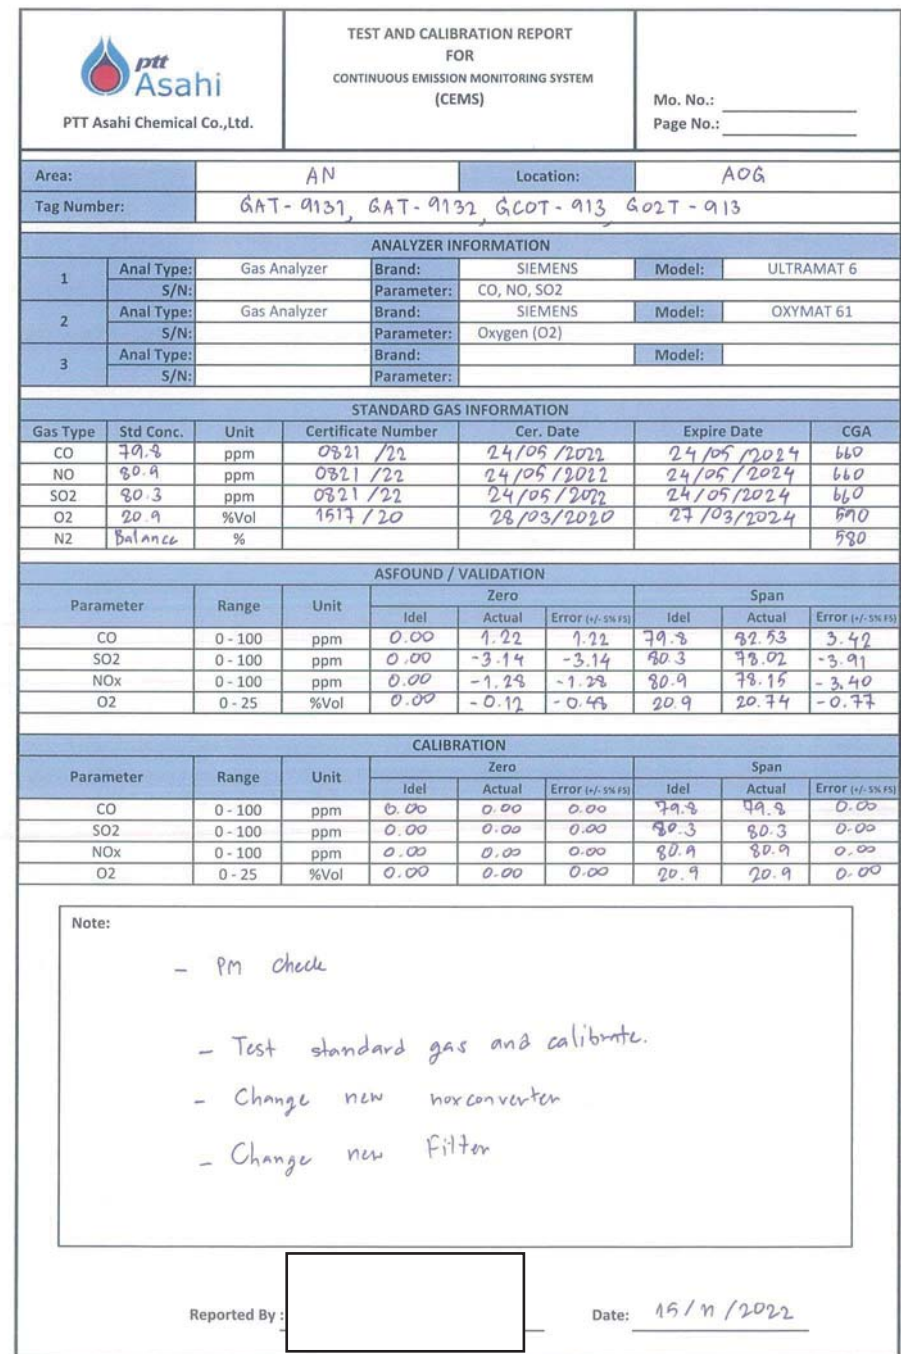 TEST AND CALIBRATION REPORT
FOR
CONTINUOUS EMISSION MONITORING SYSTEM
(CEMS)
ptt
Asahi
PTT Asahi Chemical Co.,Ltd.
Mo. No.:
Page No.:
Area: AN Location: AOG
Tag Number: GAT-9131, GAT-9132, GCOT-913, GO2T-913
ANALYZER INFORMATION
1 Anal Type: Gas Analyzer Brand: SIEMENS Model: ULTRAMAT 6
S/N: Parameter: CO, NO, SO2
2 Anal Type: Gas Analyzer Brand: SIEMENS Model: OXYMAT 61
S/N: Parameter: Oxygen (O2)
3 Anal Type: Brand: Model:
S/N: Parameter:
STANDARD GAS INFORMATION
Gas Type Std Conc. Unit Certificate Number Cer. Date Expire Date CGA
CO 79.8 ppm 0821/22 24/05/2022 24/05/2024 660
NO 80.9 ppm 0821/22 24/05/2022 24/05/2024 660
SO2 80.3 ppm 0821/22 24/05/2022 24/05/2024 660
O2 20.9 %Vol 1517/20 28/03/2020 27/03/2024 590
N2 Balance % 580
ASFOUND / VALIDATION
Parameter Range Unit Zero Span
Idel Actual Error (+/- 5% FS) Idel Actual Error (+/- 5% FS)
CO 0 - 100 ppm 0.00 1.22 1.22 79.8 82.53 3.42
SO2 0 - 100 ppm 0.00 -3.14 -3.14 80.3 78.02 -3.91
NOx 0 - 100 ppm 0.00 -1.28 -1.28 80.9 78.15 -3.40
O2 0 - 25 %Vol 0.00 -0.12 -0.48 20.9 20.74 -0.77
CALIBRATION
Parameter Range Unit Zero Span
Idel Actual Error (+/- 5% FS) Idel Actual Error (+/- 5% FS)
CO 0 - 100 ppm 0.00 0.00 0.00 79.8 79.8 0.00
SO2 0 - 100 ppm 0.00 0.00 0.00 80.3 80.3 0.00
NOx 0 - 100 ppm 0.00 0.00 0.00 80.9 80.9 0.00
O2 0 - 25 %Vol 0.00 0.00 0.00 20.9 20.9 0.00
Note:
- PM check
- Test standard gas and calibrate.
- Change new noxconverter
- Change new Filter
Reported By : Date: 15/11/2022